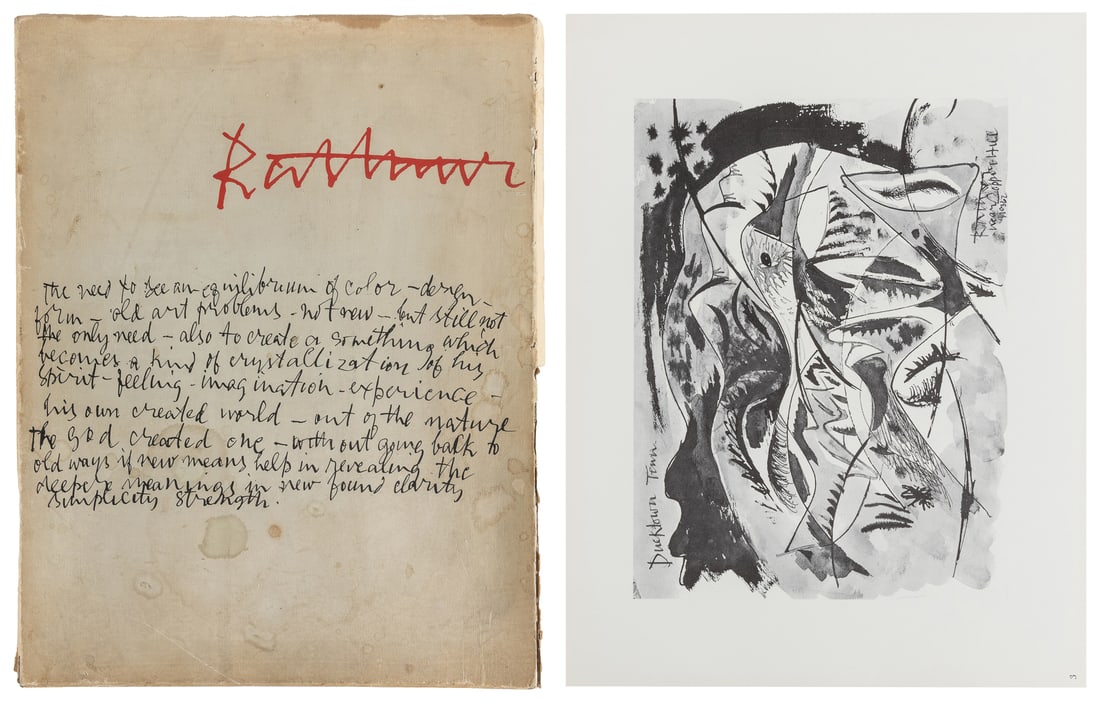 Rattner
The need to see an equilibrium of color - design -
form - old art problems - not new - but still not
the only need - also to create a something which
becomes a kind of crystallization of his
spirit - feeling - imagination - experience -
his own created world - out of the nature
the God created one - without going back to
old ways if new means help in revealing the
deeper meanings in new found clarity
simplicity strength.
Ducktown Tenn
near Copper Hill
3